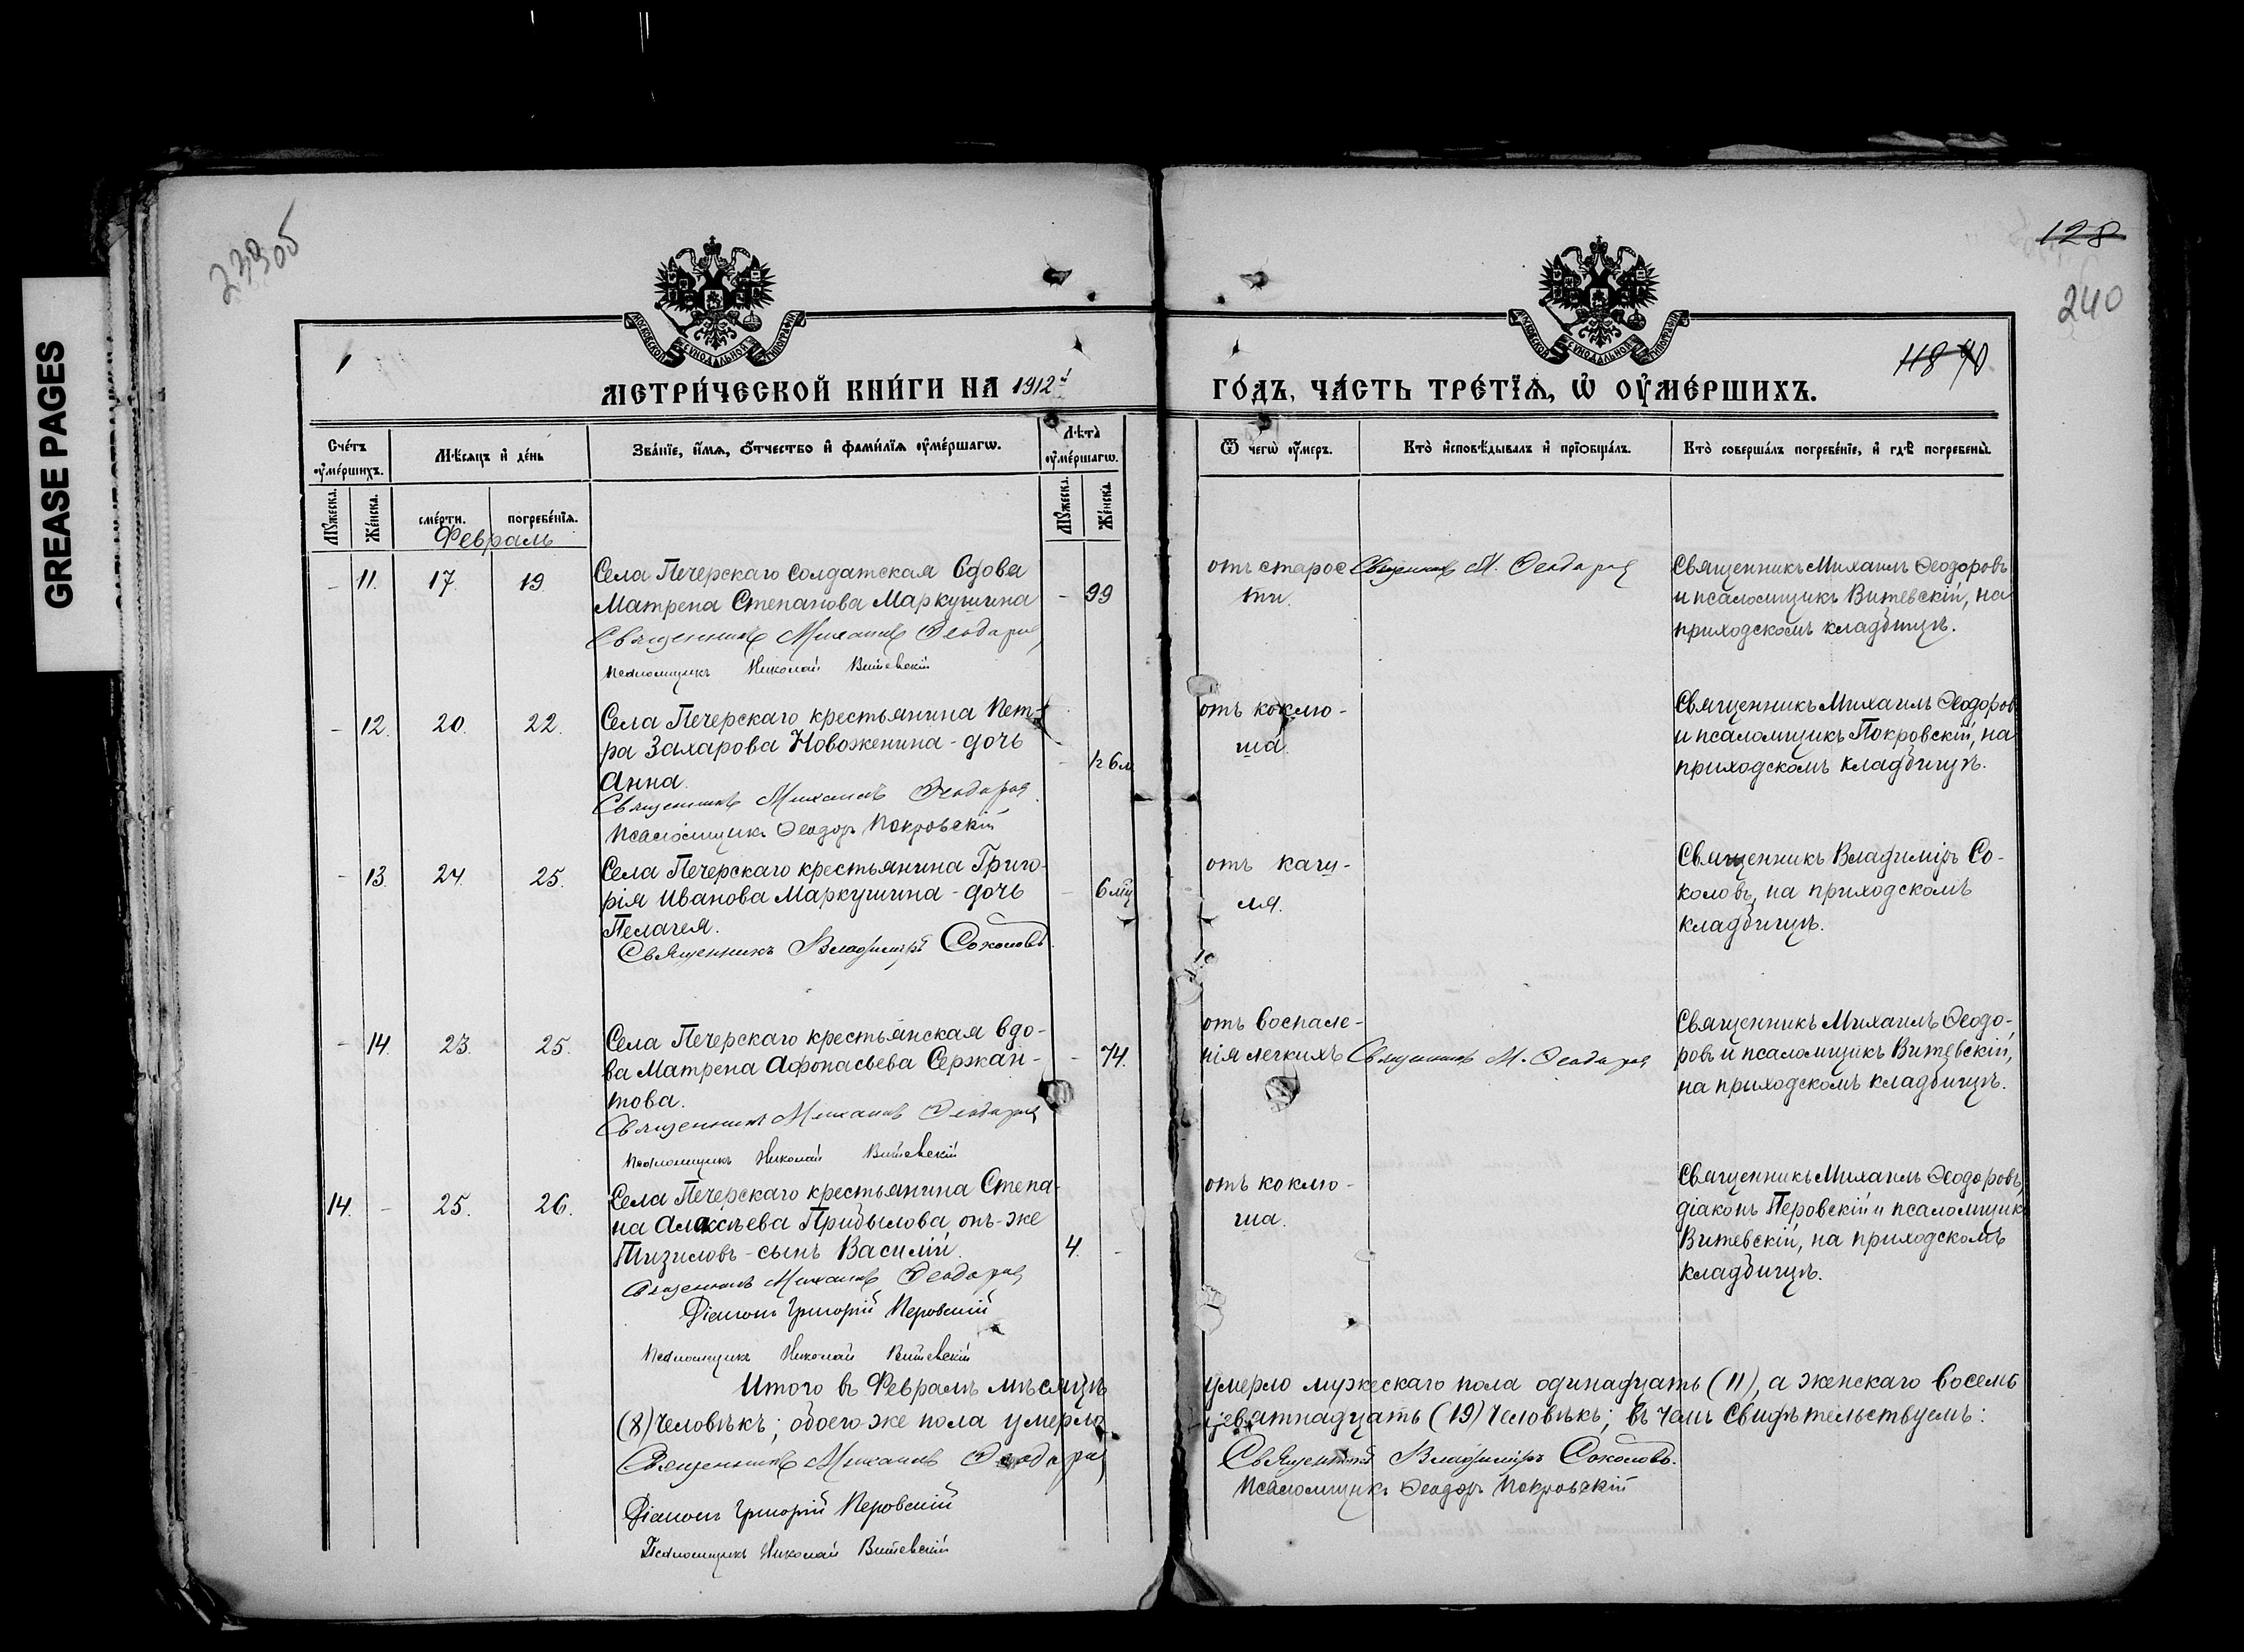 GREASE PAGES
239об
128
240
118 90
МОСКОВСКОЙ СУНОДАЛЬНОЙ ТИПОГРАФІИ
МОСКОВСКОЙ СУНОДАЛЬНОЙ ТИПОГРАФІИ
МЕТРИ́ЧЕСКОЙ КНИ́ГИ НА 1912й
ГО́ДЪ, ЧА́СТЬ ТРЕ́ТЇѦ, Ѡ҆ ОУ҆МЕ́РШИХЪ.
Сче́тъ оу҆ме́ршихъ.
Мѣ́сяцъ и҆ де́нь
Зва́нїе, и҆́мѧ, ѻ҆́тчество и҆ фами́лїѧ оу҆ме́ршагѡ.
Лѣ́та оу҆ме́ршагѡ.
Ѿ чегѡ̀ оу҆́меръ.
Кто̀ и҆сповѣ́дывалъ и҆ прїѡбща́лъ.
Кто̀ соверша́лъ погребе́нїе, и҆ гдѣ̀ погребены̀.
Мꙋ́жеска.
Же́нска.
сме́рти.
погребе́нїѧ.
Мꙋ́жеска.
Же́нска.
Февраль
- 11. 17. 19.
Села Печерскаго солдатская вдова
Матрена Степанова Маркушина
- 99
Священникъ Михаилъ Ѳеодоровъ
псаломщикъ Николай Витевскій
отъ старос
ти.
Священникъ М. Ѳеодоровъ
Священникъ Михаилъ Ѳеодоровъ
и псаломщикъ Витевскій, на
приходскомъ кладбищѣ.
- 12. 20. 22.
Села Печерскаго крестьянина Пет-
ра Захарова Новоженина - дочь
Анна.
Священникъ Михаилъ Ѳеодоровъ
Псаломщикъ Ѳеодоръ Покровскій
отъ коклю-
ша.
Священникъ Михаилъ Ѳеодоров
и псаломщикъ Покровскій, на
приходскомъ кладбищѣ.
- 13. 24. 25.
Села Печерскаго крестьянина Григо-
рія Иванова Маркушина - дочь
Пелагея.
- 6 мц
Священникъ Владиміръ Соколовъ
отъ каш-
ля.
Священникъ Владиміръ Со-
коловъ, на приходскомъ
кладбищѣ.
- 14. 23. 25.
Села Печерскаго крестьянская вдо-
ва Матрена Афонасьева Сержан-
това.
- 74.
Священникъ Михаилъ Ѳеодоровъ
псаломщикъ Николай Витевскій
отъ воспале-
нія легкихъ
Священникъ М. Ѳеодоровъ
Священникъ Михаилъ Ѳеодо-
ровъ и псаломщикъ Витевскій,
на приходскомъ кладбищѣ.
14. - 25. 26.
Села Печерскаго крестьянина Степа-
на Алексѣева Прибылова онъ-же
Тизиловъ - сынъ Василій.
4. -
Священникъ Михаилъ Ѳеодоровъ
Діаконъ Григорій Перовскій
псаломщикъ Николай Витевскій
отъ коклю-
ша.
Священникъ Михаилъ Ѳеодоровъ,
діаконъ Перовскій и псаломщикъ
Витевскій, на приходскомъ
кладбищѣ.
Итого въ Февралѣ мѣсяцѣ умерло мужескаго пола одинадцать (11), а женскаго восемь
(8) человѣкъ; обоего-же пола умерло девятнадцать (19) человѣкъ; въ чемъ свидѣтельствуемъ:
Священникъ Михаилъ Ѳеодоровъ
Діаконъ Григорій Перовскій
Псаломщикъ Николай Витевскій
Священникъ Владиміръ Соколовъ.
Псаломщикъ Ѳеодоръ Покровскій